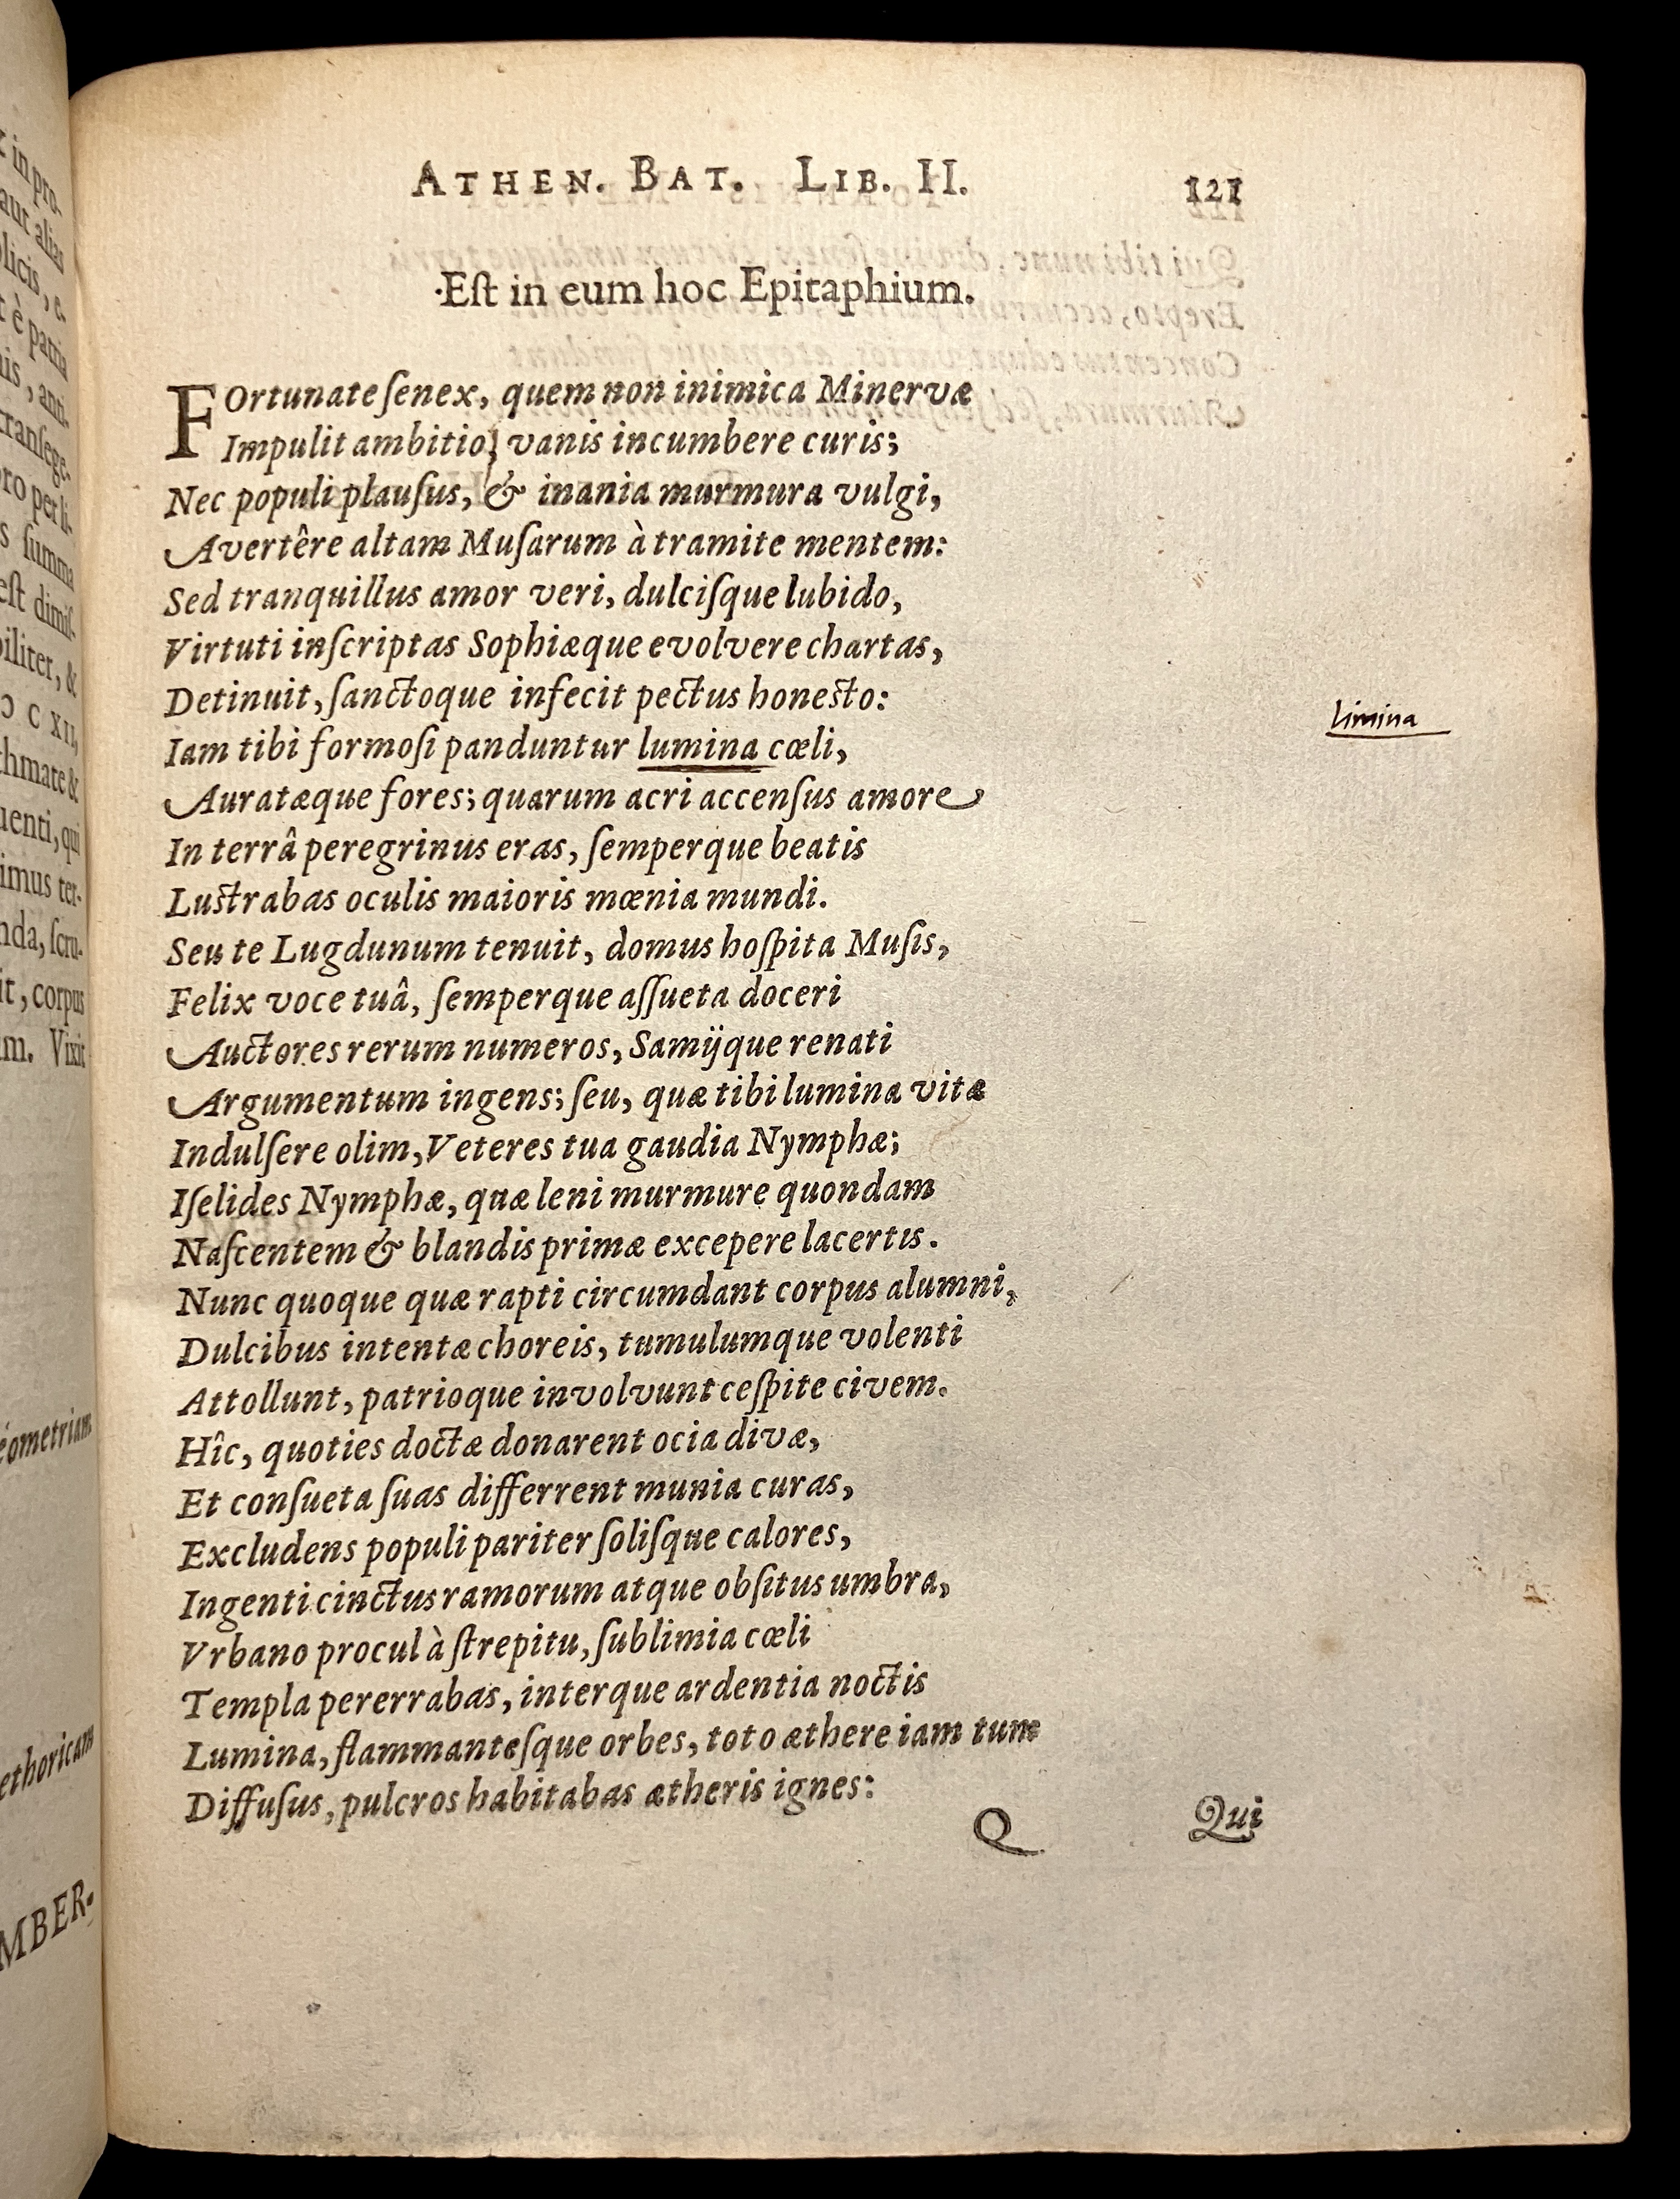 ATHEN. BAT. LIB. II. 121
Eſt in eum hoc Epitaphium.
FOrtunate ſenex, quem non inimica Minervæ
Impulit ambitio, vanis incumbere curis;
Nec populi plauſus, & inania murmura vulgi,
Avertêre altam Muſarum à tramite mentem:
Sed tranquillus amor veri, dulciſque lubido,
Virtuti inſcriptas Sophiæque evolvere chartas,
Detinuit, ſanctoque infecit pectus honesto:
limina
Iam tibi formoſi panduntur lumina cœli,
Auratæque fores; quarum acri accenſus amore
In terrâ peregrinus eras, ſemperque beatis
Lustrabas oculis maioris mœnia mundi.
Seu te Lugdunum tenuit, domus hoſpita Muſis,
Felix voce tuâ, ſemperque aſſueta doceri
Auctores rerum numeros, Samijque renati
Argumentum ingens; ſeu, quæ tibi lumina vitæ
Indulſere olim, Veteres tua gaudia Nymphæ;
Iſelides Nymphæ, quæ leni murmure quondam
Naſcentem & blandis primæ excepere lacertis.
Nunc quoque quæ rapti circumdant corpus alumni,
Dulcibus intentæ choreis, tumulumque volenti
Attollunt, patrioque involvunt ceſpite civem.
Hîc, quoties doctæ donarent ocia divæ,
Et conſueta ſuas differrent munia curas,
Excludens populi pariter ſoliſque calores,
Ingenti cinctus ramorum atque obſitus umbra,
Vrbano procul à ſtrepitu, ſublimia cœli
Templa pererrabas, interque ardentia noctis
Lumina, flammanteſque orbes, toto æthere iam tum
Diffuſus, pulcros habitabas ætheris ignes:
Q Qui